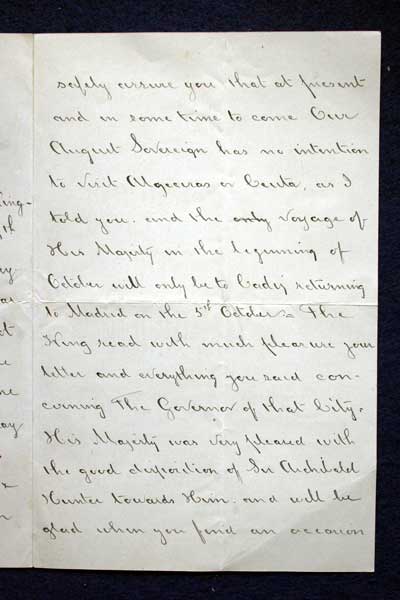 safely assure you that at present
and in some time to come Our
August Sovereign has no intention
to visit Algeciras or Ceuta, as I
told you. and the only voyage of
His Majesty in the beginning of
October will only be to Cadiz returning
to Madrid on the 5th October. The
King read with much pleasure your
letter and everything you said con-
cerning The Governor of that City.
His Majesty was very pleased with
the good disposition of Sir Archibald
Hunter towards Him. and will be
glad when you find an occasion